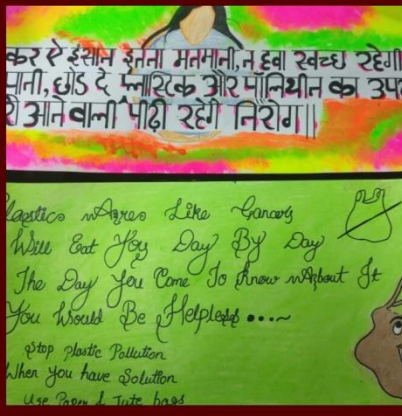 कर ऐ इंसान इतना मनमानी, न हवा स्वच्छ रहेगी
पानी, छोड दे प्लास्टिक और पॉलिथीन का उप
से आने वाली पीढ़ी रहेगी निरोग||
Plastics Are Like Cancer
Will Eat You Day By Day
The Day You Come To Know About It
You Would Be Helpless
Stop Plastic Pollution
When you have Solution
Use Paper & Jute bags